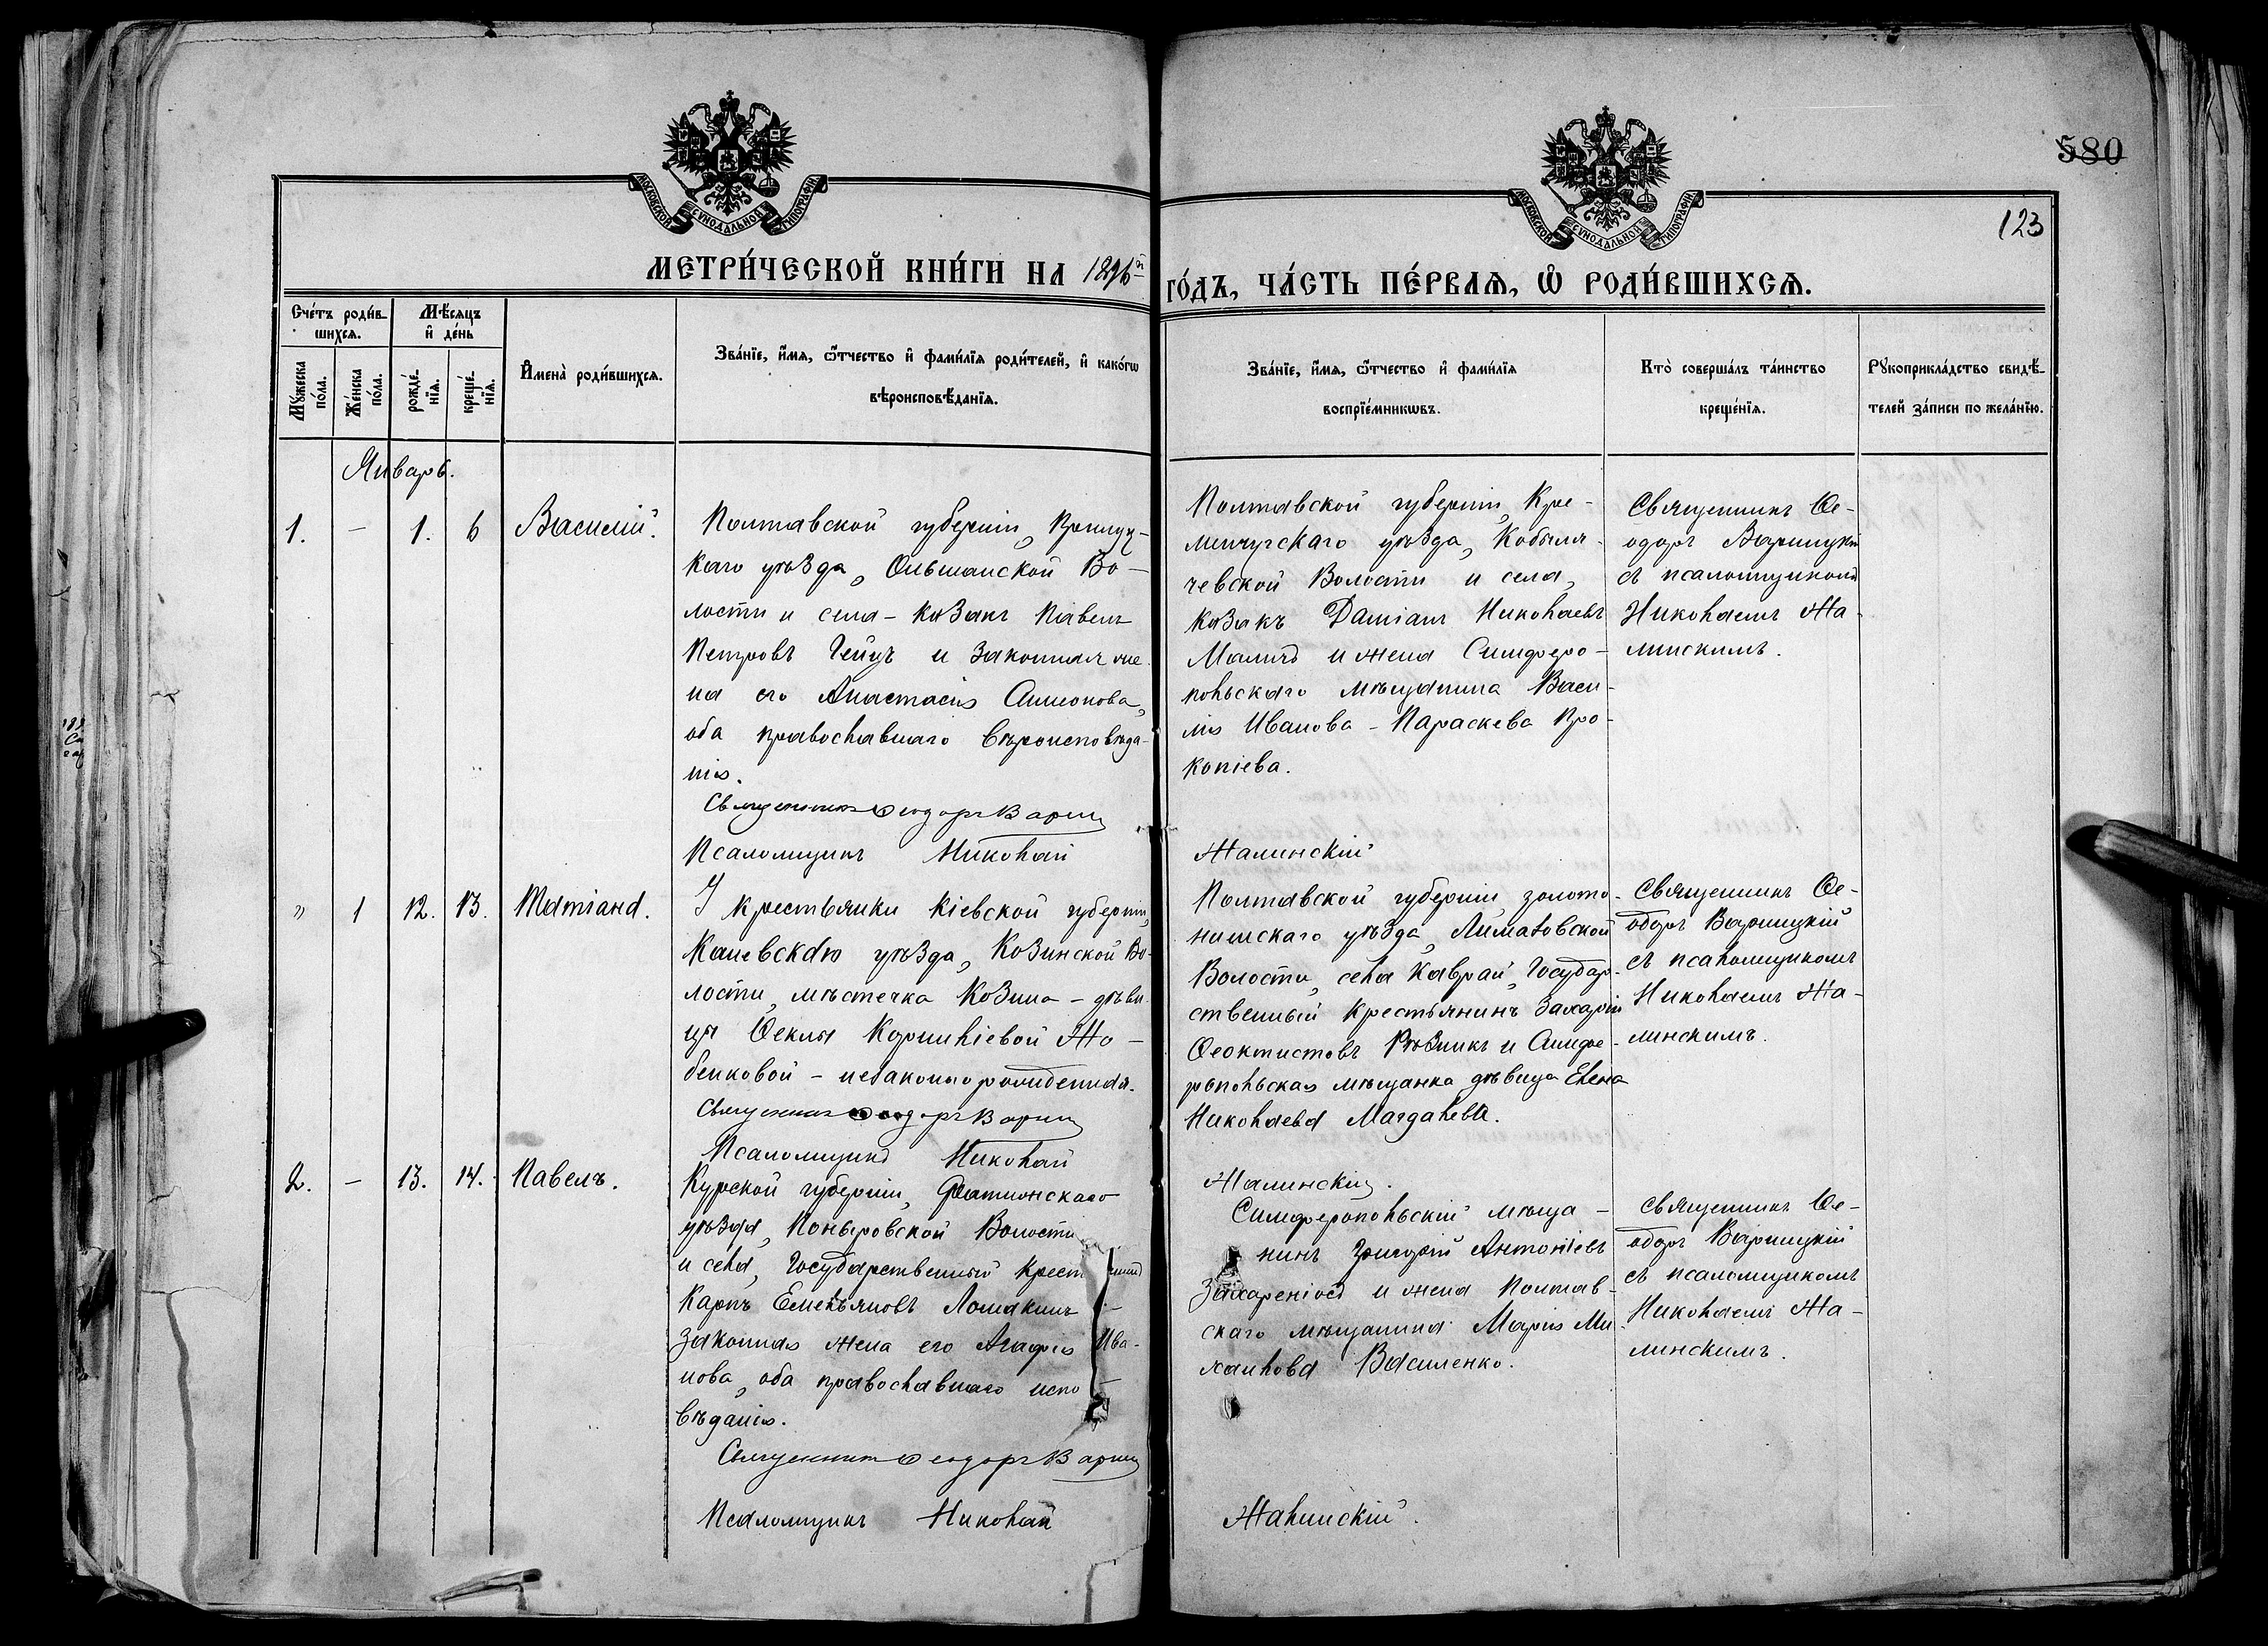 580
123
МОСКОВСКОЙ СѴНОДАЛЬНОЙ ТИПОГРАФІИ.
МОСКОВСКОЙ СѴНОДАЛЬНОЙ ТИПОГРАФІИ.
МЕТРИ́ЧЕСКОЙ КНИ́ГИ НА 1896й
ГО́ДЪ, ЧА́СТЬ ПЕ́РВАѦ, Ѽ РОДИ́ВШИХСѦ.
Сче́тъ роди́в-
шихсѧ.
Мѣ́сяцъ
и҆ де́нь
Мꙋ́жеска по́ла.
Же́нска по́ла.
рожде́-
нїѧ.
креще́-
нїѧ.
И҆мена̀ роди́вшихсѧ.
Зва́нїе, и҆́мѧ, ѻ҆́тчество и҆ фами́лїѧ роди́телей, и҆ како́гѡ
вѣроисповѣ́данїѧ.
Зва́нїе, и҆́мѧ, ѻ҆́тчество и҆ фами́лїѧ
воспрїе́мникѡвъ.
Кто̀ соверша́лъ та́инство
креще́нїѧ.
Рꙋкоприкла́дство свидѣ́-
телей за́писи по жела́нїю.
Январь.
1. — 1. 6 Василій.
Полтавской губерніи, Прилуц-
каго уѣзда, Ольшанской Во-
лости и села - козакъ Павелъ
Петровъ Гейцъ и законная же-
на его Анастасія Симеонова,
оба православнаго вѣроисповѣда-
нія.
Священникъ Ѳеодоръ Вариц
Псаломщикъ Николай
Полтавской губерніи, Кре-
менчугскаго уѣзда, Кобыля-
чевской Волости и села,
козакъ Даміанъ Николаевъ
и жена Симферо-
польскаго мѣщанина Васи-
лія Иванова - Параскева Про-
копіева.
Жалинскій
Священникъ Ѳе-
одоръ Варицкій
съ псаломщикомъ
Николаемъ Жа-
линскимъ.
" 1 12. 13. Татіана.
У крестьянки Кіевской губерніи,
Каневскаго уѣзда, Козинской Во-
лости, мѣстечка Козина - дѣви-
цы Ѳеклы Корниліевой
- незаконнорожденная.
Священникъ Ѳеодоръ Вариц
Псаломщикъ Николай
Полтавской губерніи, золото-
ношскаго уѣзда,
Волости, села Каврай, Государ-
ственный крестьянинъ Захарій
Ѳеоктистовъ Рѣзникъ и Симфе-
ропольская мѣщанка дѣвица Елена
Николаева Магдалева.
Жалинскій.
Священникъ Ѳе-
одоръ Варицкій
съ псаломщикомъ
Николаемъ Жа-
линскимъ.
2. — 13. 14. Павелъ.
Курской губерніи, Фатежскаго
уѣзда, Поныровской Волости
и села, Государственный крест
Карпъ Емельяновъ Ломакинъ
законная жена его Агафія Ива-
нова, оба православнаго испо-
вѣданія.
Священникъ Ѳеодоръ Вариц
Псаломщикъ Николай
Симферопольскій мѣща-
нинъ Григорій Антоніевъ
и жена Полтав-
скаго мѣщанина Марія Ми-
хайлова Василенко.
Жалинскій.
Священникъ Ѳе-
одоръ Варицкій
съ псаломщикомъ
Николаемъ Жа-
линскимъ.